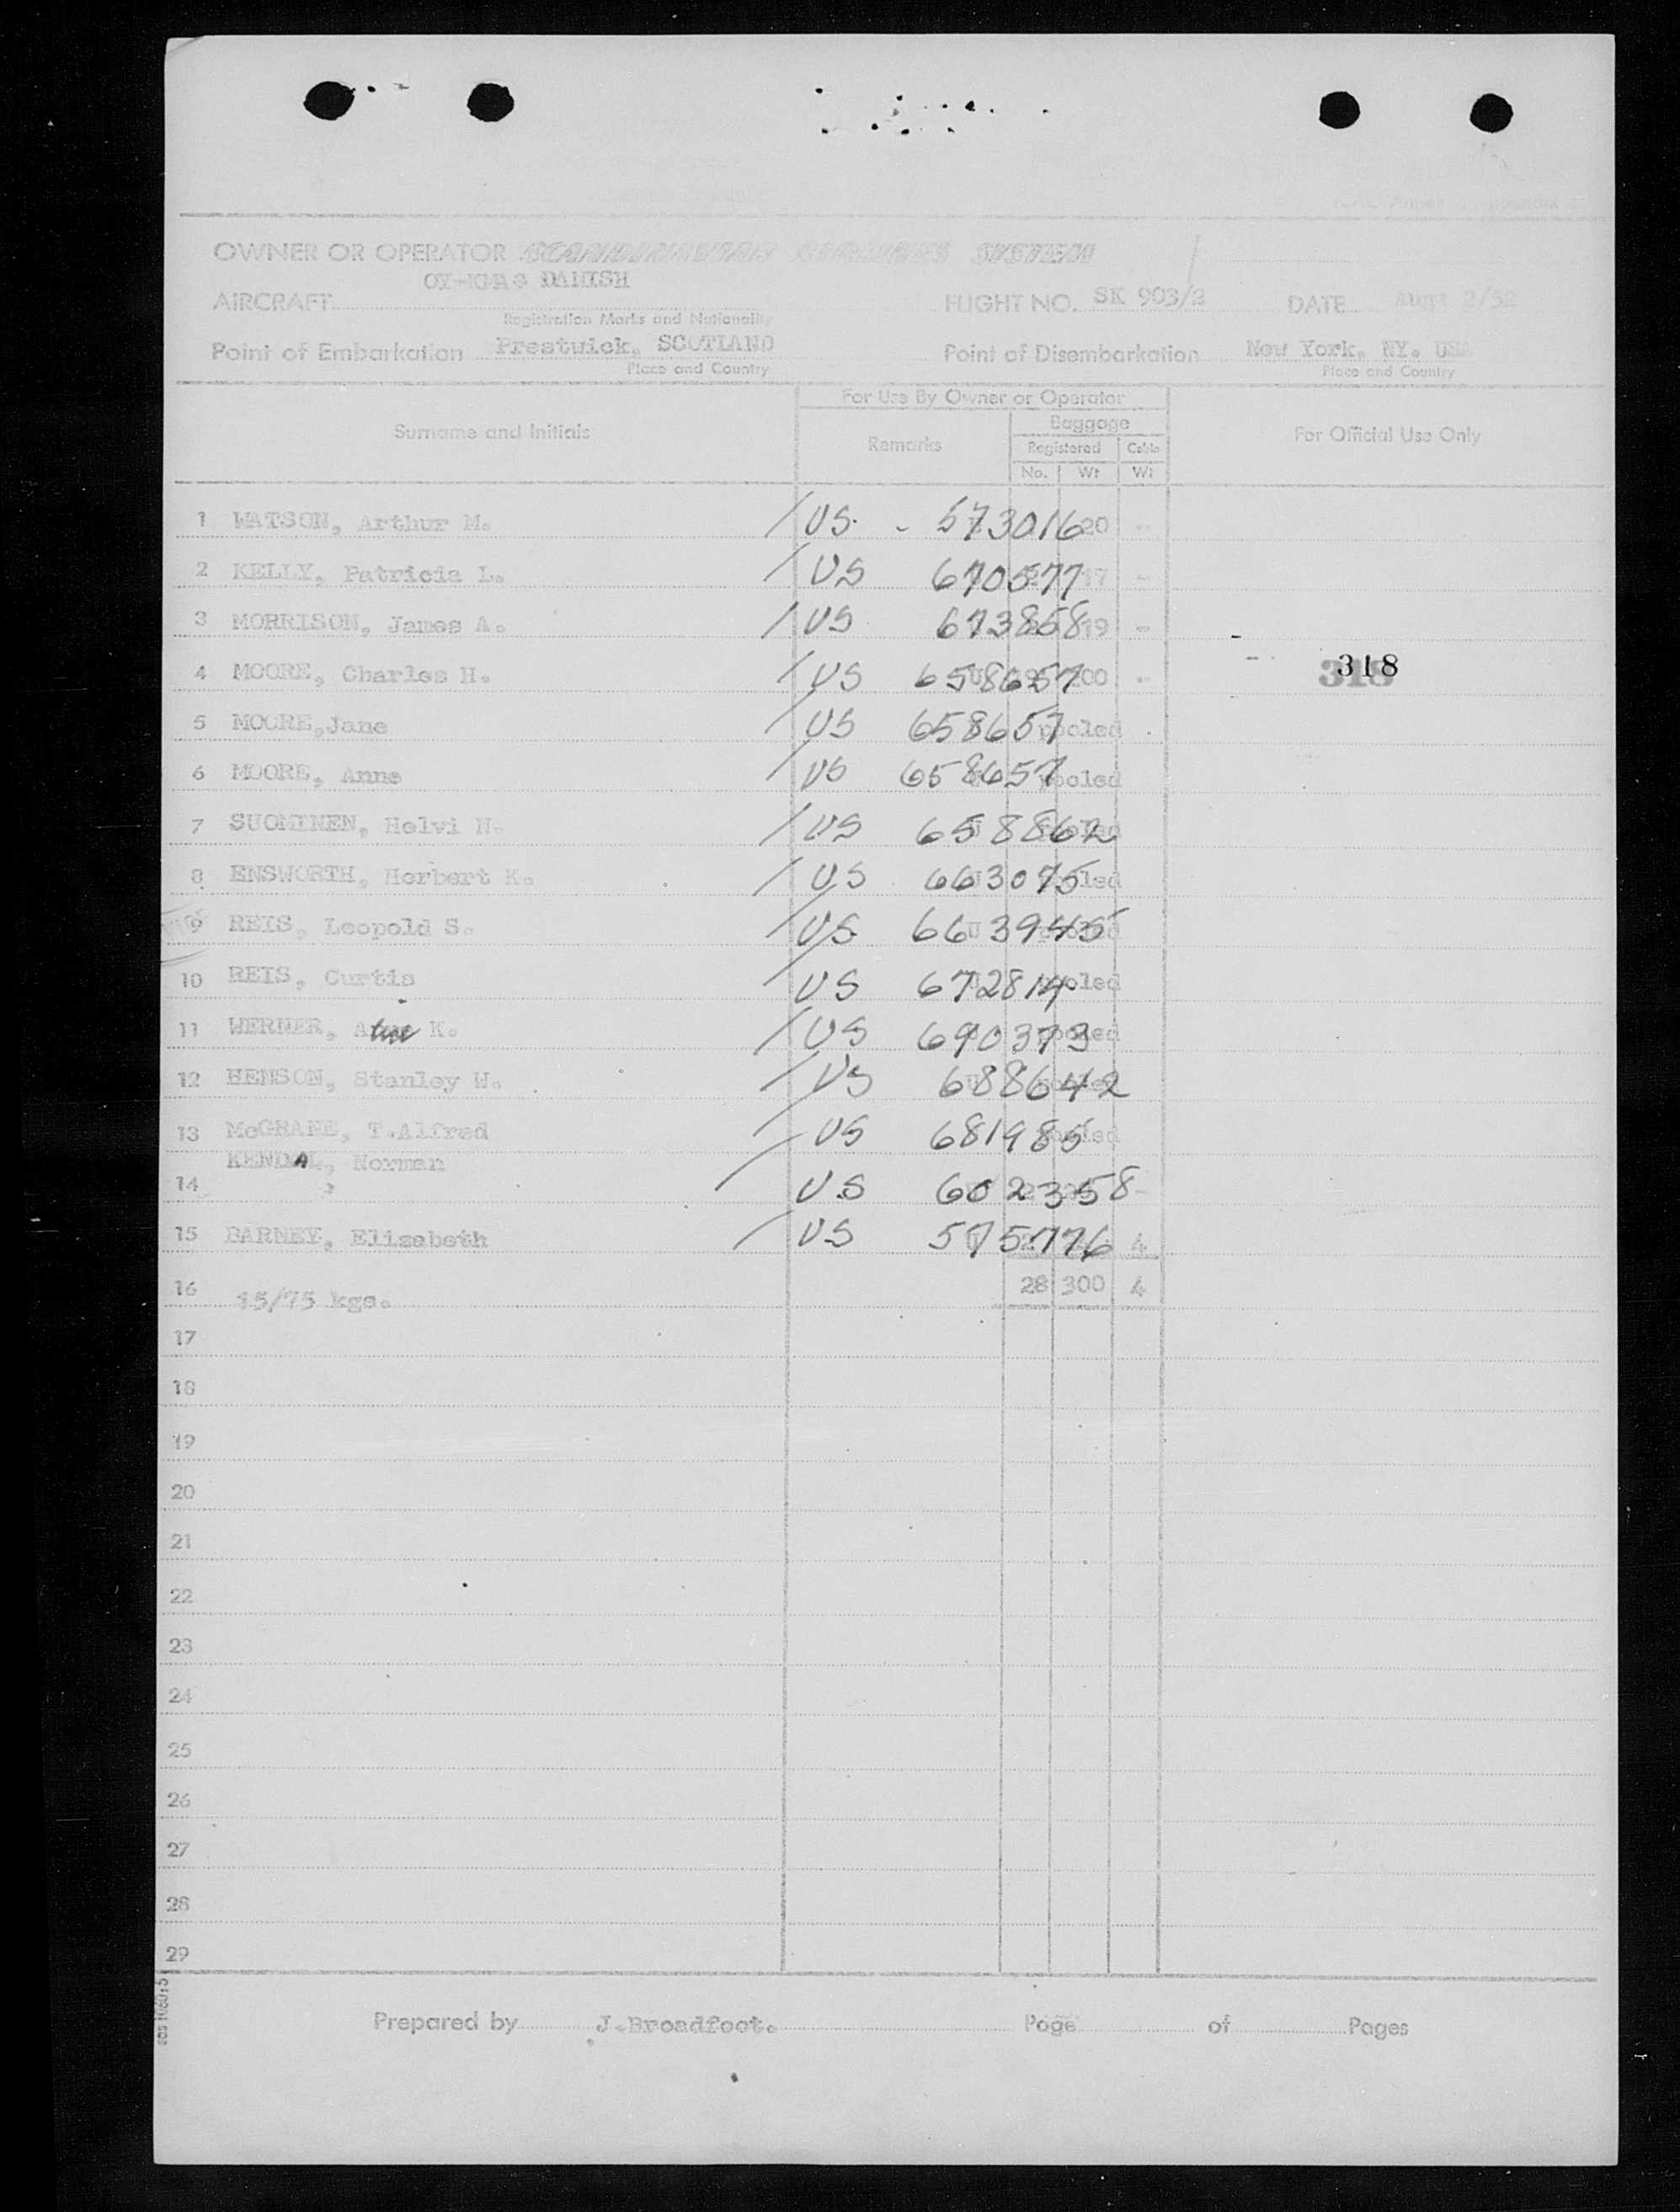 OWNER OR OPERATOR SCANDINAVIAN AIRLINES SYSTEM
DANISH
AIRCRAFT FLIGHT NO. SK 903/2 DATE Augt 2/52
Registration Marks and Nationality
Point of Embarkation Prestwick, SCOTLAND Point of Disembarkation New York, NY. USA
Place and Country Place and Country
For Use By Owner or Operator
Surname and Initials Remarks Baggage For Official Use Only
Registered Cabin
No. Wt Wt
1 WATSON, Arthur M. / US. - 573016 20 -
2 KELLY, Patricia L. / US 670577 17 -
3 MORRISON, James A. / US 673858 19 -
4 MOORE, Charles H. / US 658657 200 - 318
5 MOORE, Jane / US 658657 pooled
6 MOORE, Anne / US 658657 pooled
7 SUOMINEN, Helvi N. / US 658862 pooled
8 ENSWORTH, Herbert K. / US 663075 pooled
9 REIS, Leopold S. / US 663945 pooled
10 REIS, Curtis / US 672814 pooled
11 WERNER, K. / US 690373 pooled
12 HENSON, Stanley W. / US 688642 pooled
13 McGRANE, T.Alfred / US 681985 pooled
KENDAL, Norman
14 / US 602358 -
15 BARNEY, Elizabeth / US 575776 4
16 15/75 kgs. 28 300 4
17
18
19
20
21
22
23
24
25
26
27
28
29
Prepared by J.Broadfoot. Page of Pages